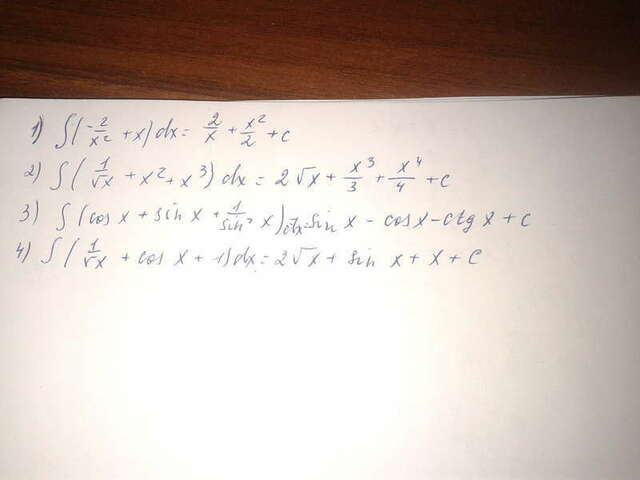 1) ∫(-2/x² + x)dx = 2/x + x²/2 + c
2) ∫(1/√x + x² + x³) dx = 2√x + x³/3 + x⁴/4 + c
3) ∫(cos x + sin x + 1/sin² x)dx = sin x - cos x - ctg x + c
4) ∫(1/√x + cos x + 1)dx = 2√x + sin x + x + c